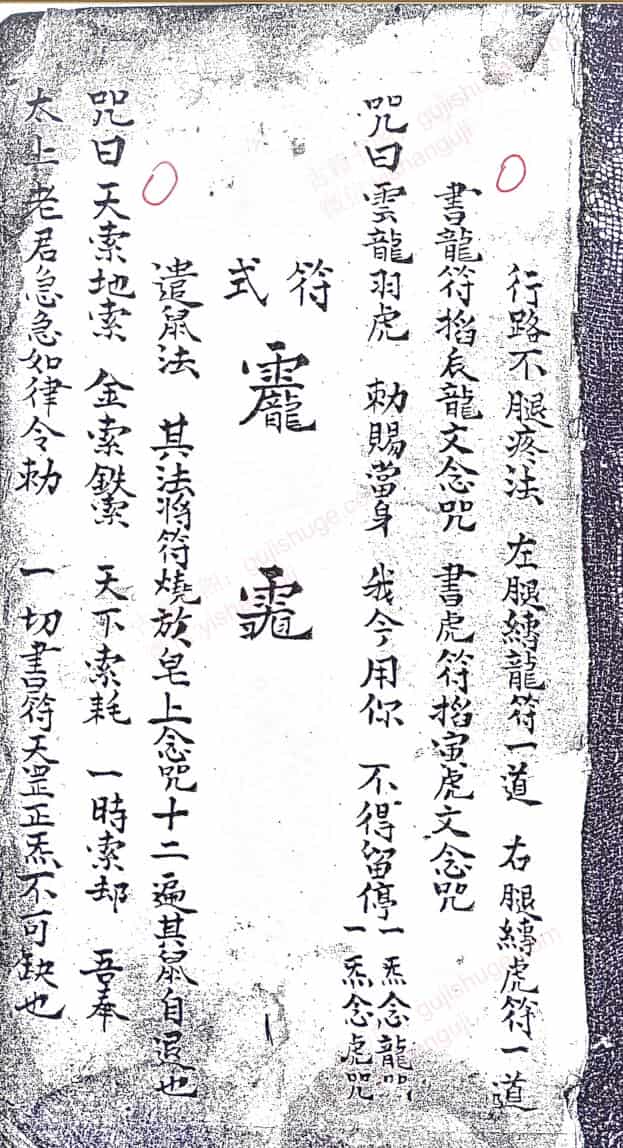 行路不腿疼法 左腿縛龍符一道 右腿縛虎符一道
書龍符掐辰龍文念咒 書虎符掐寅虎文念咒
咒曰雲龍羽虎 勅賜當身 我今用你 不得留停 一炁念龍咒 一炁念虎咒
符式
遣鼠法 其法將符燒放皂上念咒十二遍其鼠自退也
咒曰天索地索 金索鉄索 天下索耗 一時索却 吾奉
太上老君急急如律令勅 一切書符天罡正炁不可缺也